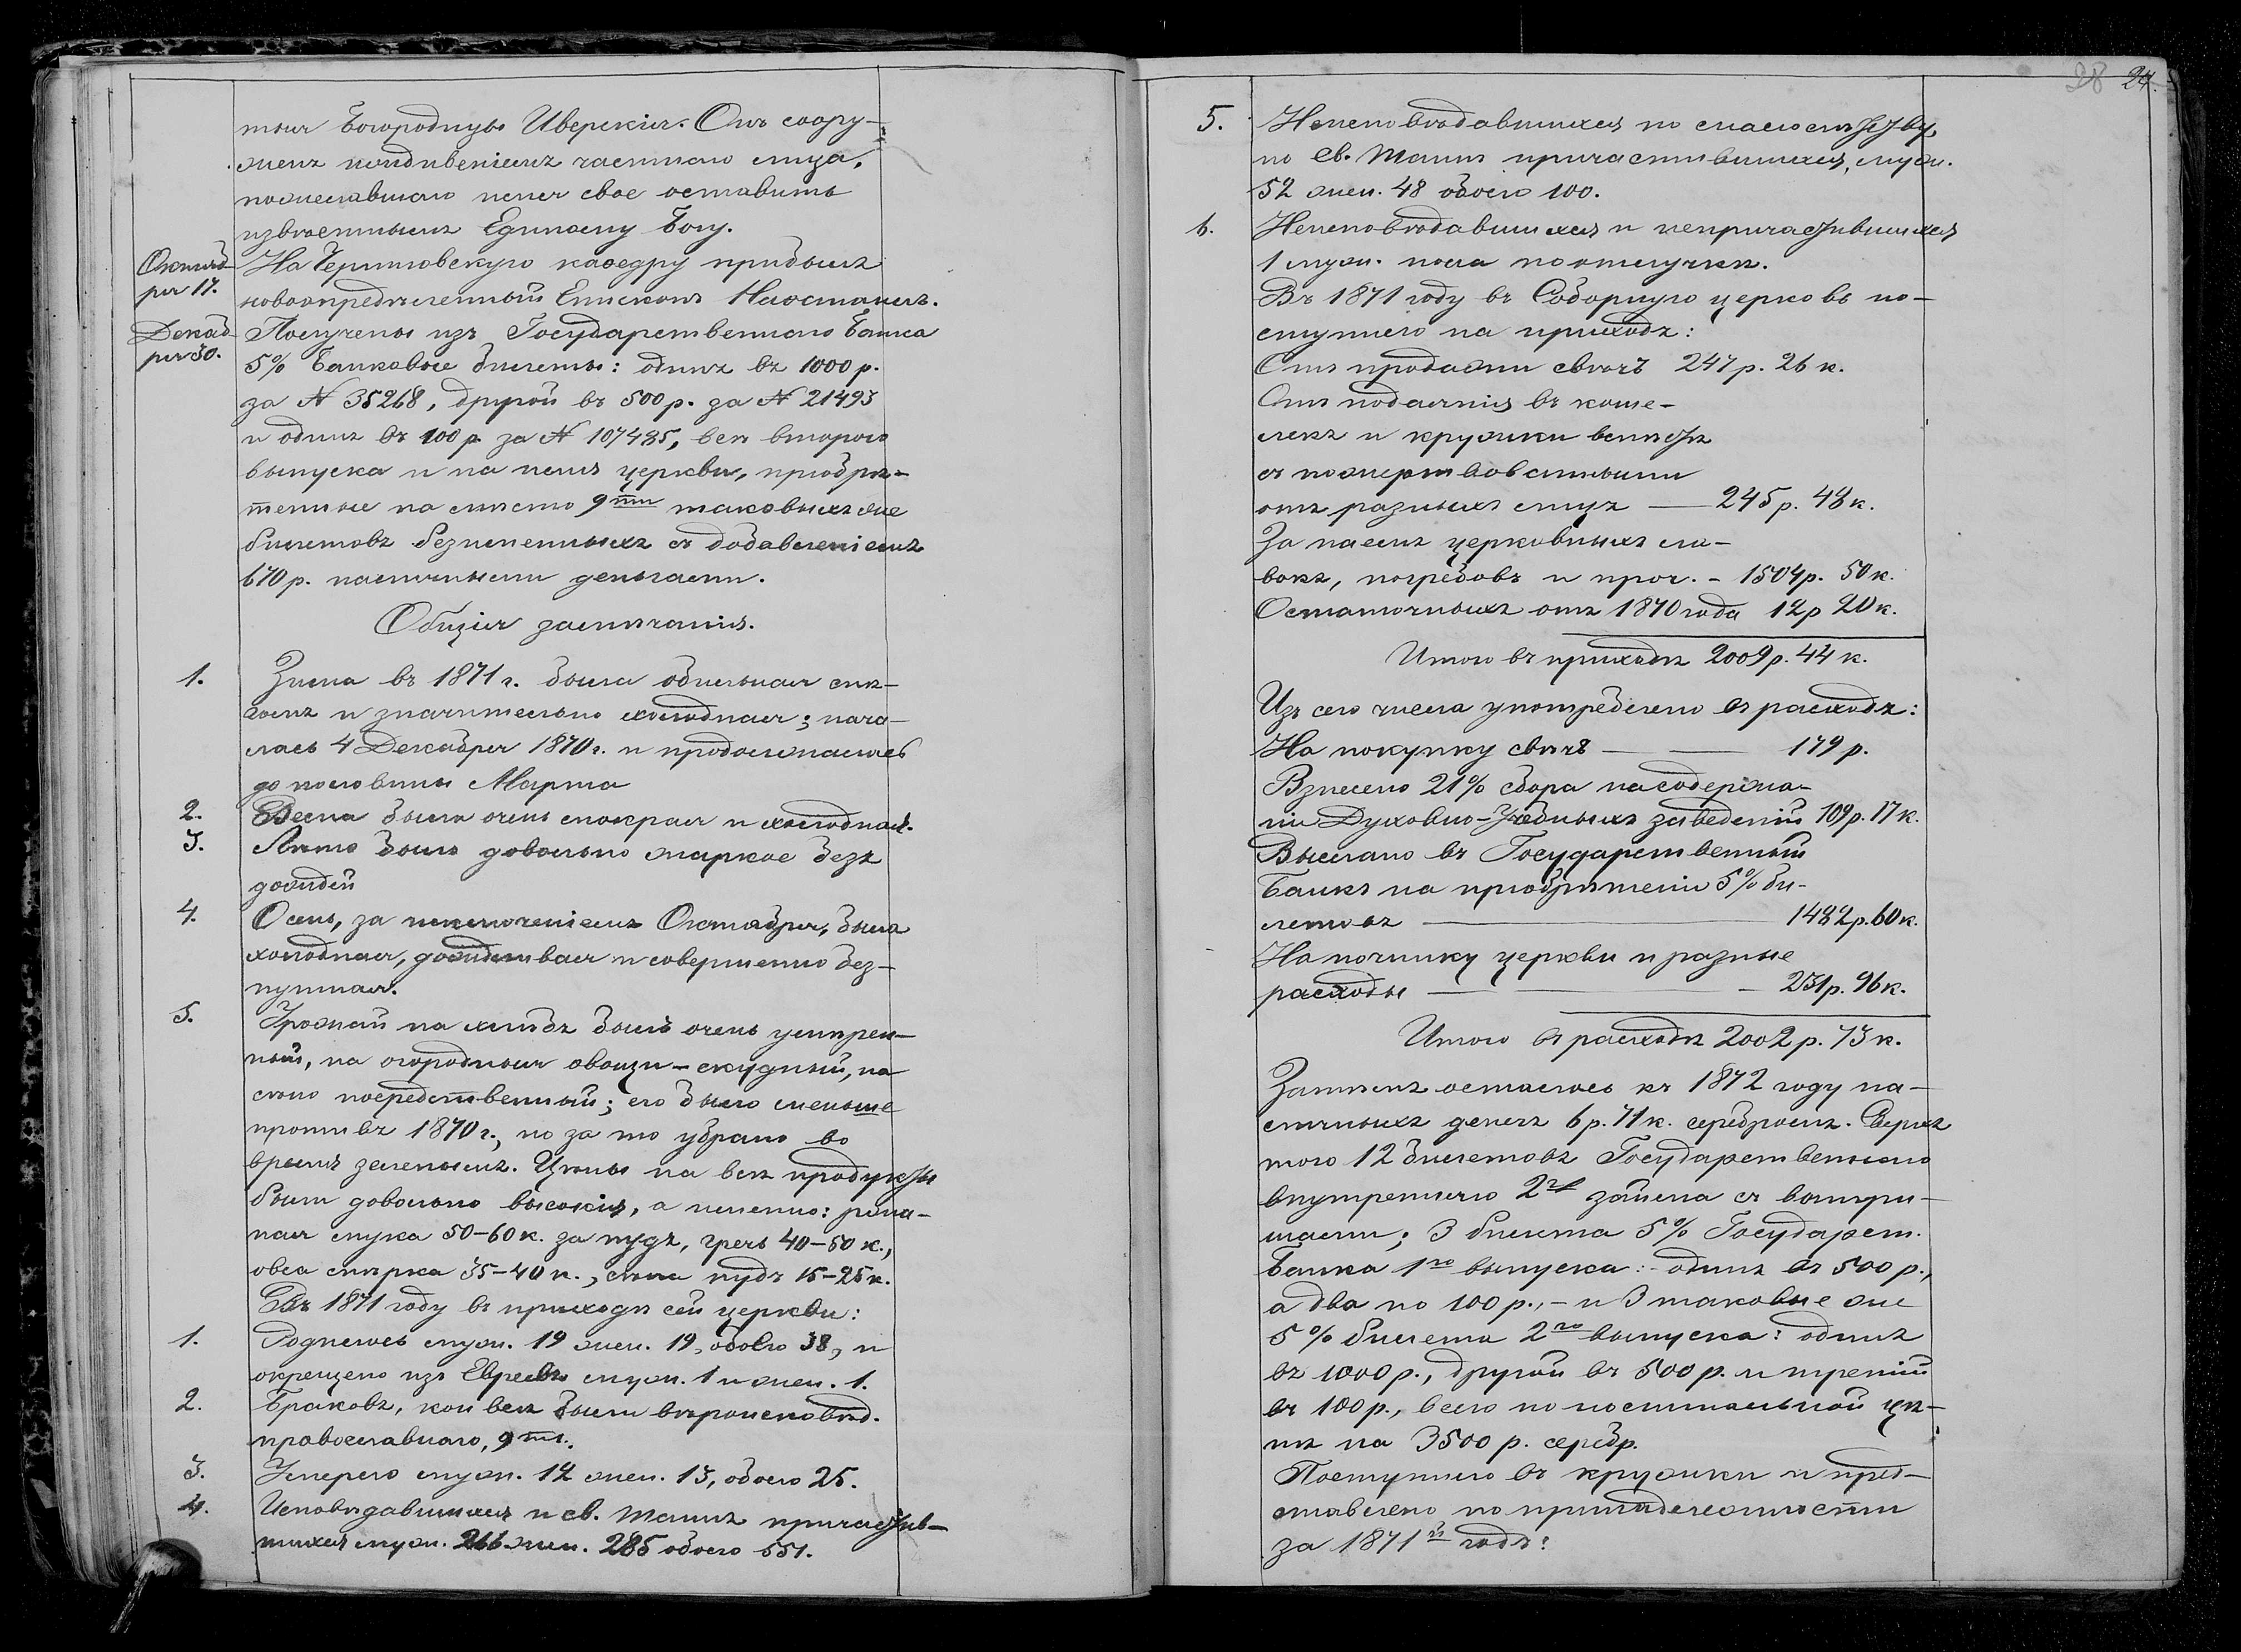 тыя Богородицы Иверскія. Онъ соору-
женъ иждивеніемъ частнаго лица,
пожелавшаго имя свое оставить
извѣстнымъ Единому Богу.
Октяб-
ря 17.
На Черниговскую каѳедру прибылъ
новоопредѣленный Епископъ Наѳанаилъ.
Декаб-
ря 30.
Получены изъ Государственнаго Банка
5% Банковые билеты: одинъ въ 1000 р.
за № 35268, другой въ 500 р. за № 21493
и одинъ въ 100 р. за № 107485, всѣ втораго
выпуска и на имя церкви, пріобрѣ-
тенные на мѣсто 9ти таковыхъ же
билетовъ безъименныхъ съ добавленіемъ
670 р. наличными деньгами.
Общія замѣчанія.
1. Зима въ 1871 г. была обильная снѣ-
гомъ и значительно холодная; нача-
лась 4 Декабря 1870 г. и продолжалась
до половины Марта
2. Весна была очень мокрая и холодная.
3. Лѣто было довольно жаркое безъ
дождей
4. Осень, за исключеніемъ Октября, была
холодная, дождливая и совершенно без-
путная.
5. Урожай на хлѣбъ былъ очень умѣрен-
ный, на огородныя овощи - скудный, на
сѣно посредственный; его было меньше
противъ 1870 г., но за то убрано во
время зеленымъ. Цѣны на всѣ продукты
были довольно высокія, а именно: ржа-
ная мука 50-60 к. за пудъ, гречь 40-50 к.,
овса мѣрка 35-40 к., сѣна пудъ 15-25 к.
Въ 1871 году въ приходѣ сей церкви:
1. Родилось муж. 19 жен. 19, обоего 38, и
окрещено изъ Евреевъ муж. 1 и жен. 1.
2. Браковъ, кои всѣ были вѣроисповѣд.
православнаго, 9ть.
3. Умерло муж. 12 жен. 13, обоего 25.
4. Исповѣдавшихся и св. Таинъ причастив-
шихся муж. 266 жен. 285 обоего 551.
28 24.
5. Неисповѣдавшихся по малолѣтству,
но св. Таинъ причастившихся, муж.
52 жен. 48 обоего 100.
6. Неисповѣдавшихся и непричастившихся
1 муж. пола по отлучкѣ.
Въ 1871 году въ Соборную церковь по-
ступило на приходъ:
Отъ продажи свѣчъ 247 р. 26 к.
Отъ подаянія въ коше-
лекъ и кружки вмѣстѣ
съ пожертвованными
отъ разныхъ лицъ — 245 р. 48 к.
За наемъ церковныхъ ла-
вокъ, погребовъ и проч. - 1504 р. 50 к.
Остаточныхъ отъ 1870 года 12 р 20 к.
Итого въ приходѣ 2009 р. 44 к.
Изъ сего числа употреблено въ расходъ:
На покупку свѣчъ — — 179 р.
Взнесено 21% сбора на содержа-
ніе Духовно-Учебныхъ заведеній 109 р. 17 к.
Выслано въ Государственный
Банкъ на пріобрѣтеніе 5% би-
летовъ — 1482 р. 60 к.
На починку церкви и разные
расходы — — 231 р. 96 к.
Итого въ расходѣ 2002 р. 73 к.
Затѣмъ осталось къ 1872 году на-
личныхъ денегъ 6 р. 71 к. серебромъ. Сверхъ
того 12 билетовъ Государственнаго
внутренняго 2го займа съ выигры-
шами; 3 билета 5% Государст.
Банка 1го выпуска: одинъ въ 500 р.,
а два по 100 р., - и 3 таковые же
5% билета 2го выпуска: одинъ
въ 1000 р., другой въ 500 р. и третій
въ 100 р., всего по номинальной цѣ-
нѣ на 3500 р. серебр.
Поступило въ кружки и пред-
ставлено по принадлежности
за 1871й годъ: